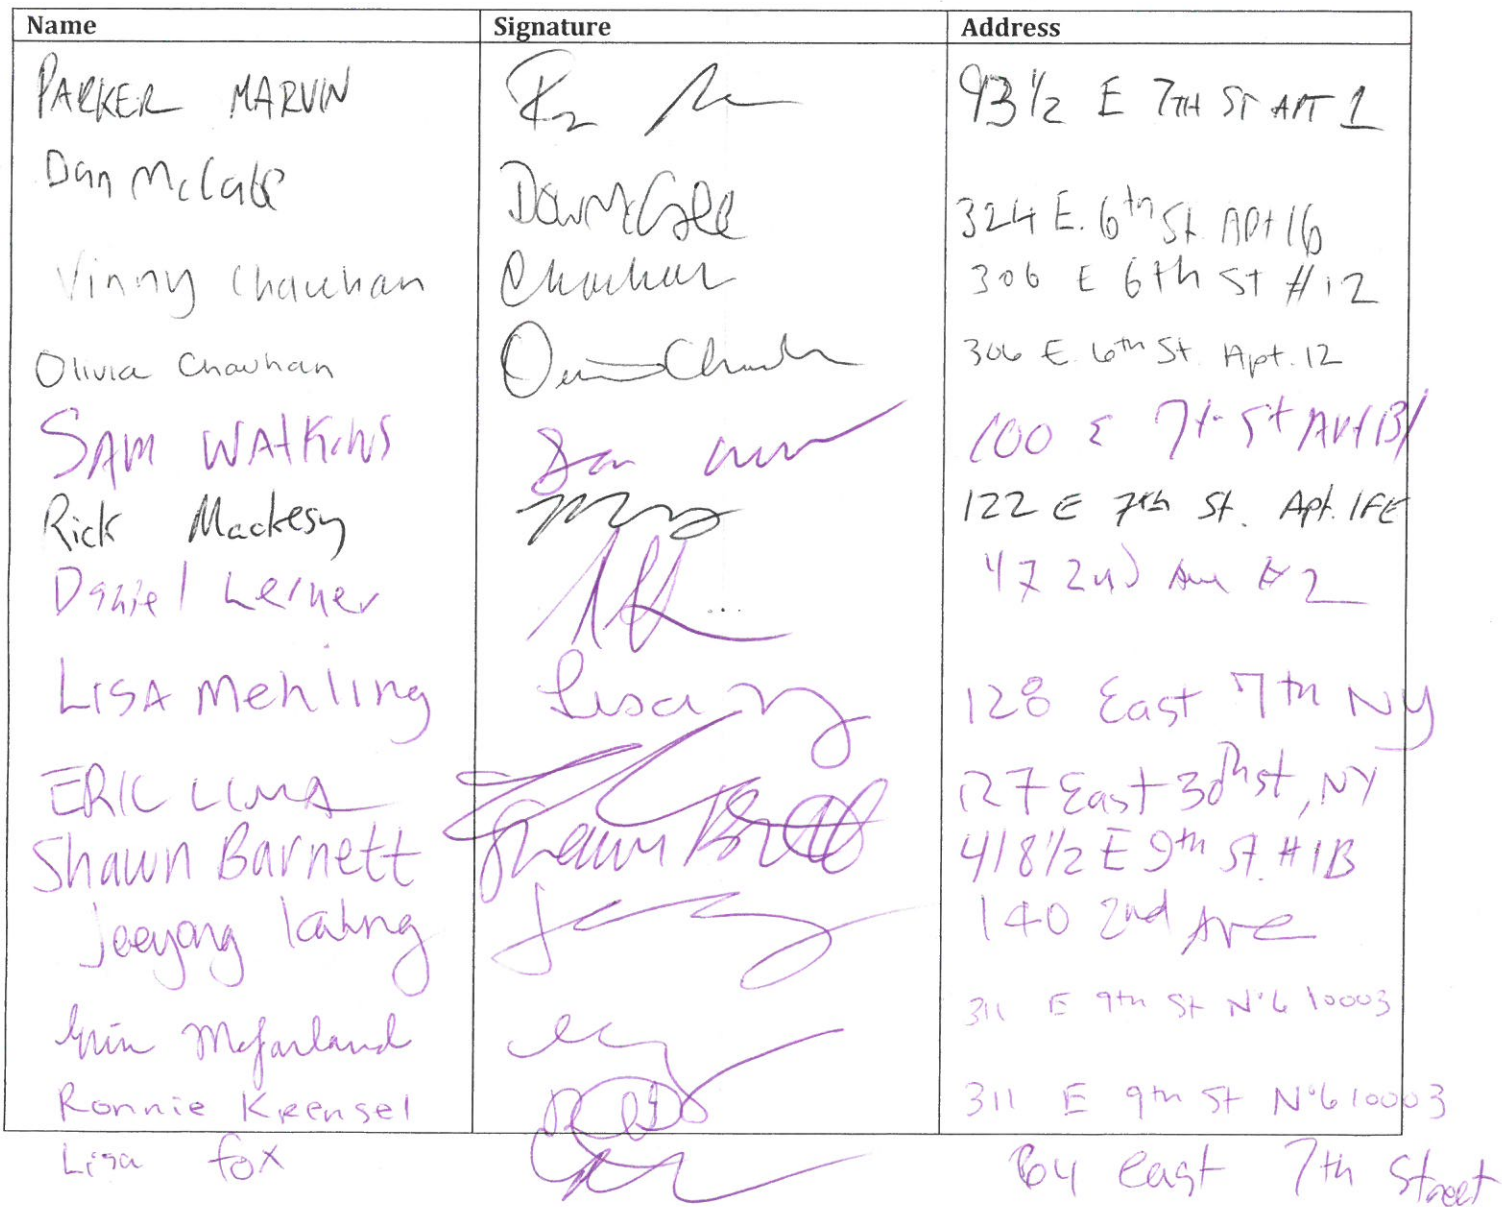 Name Signature Address
PARKER MARVIN 93 1/2 E 7TH ST APT 1
Dan McCabe 324 E. 6th St. Apt 16
Vinny Chauhan Chauhan 306 E 6th ST #12
Olivia Chauhan 306 E. 6th St. Apt. 12
SAM WATKINS 100 E 7th St Apt B1
Rick Mackesy 122 E 7th St. Apt. 1FE
Daniel Lerner 47 2nd Ave # 2
LISA Mehling Lisa 128 East 7th NY
ERIC LIMA 127 East 3rd St, NY
Shawn Barnett Shawn 418 1/2 E 9th St. #1B
Jeeyong Kahng 140 2nd Ave
Erin McFarland 311 E 9th St Nº6 10003
Ronnie Krensel 311 E 9th St Nº6 10003
Lisa Fox 64 East 7th Street